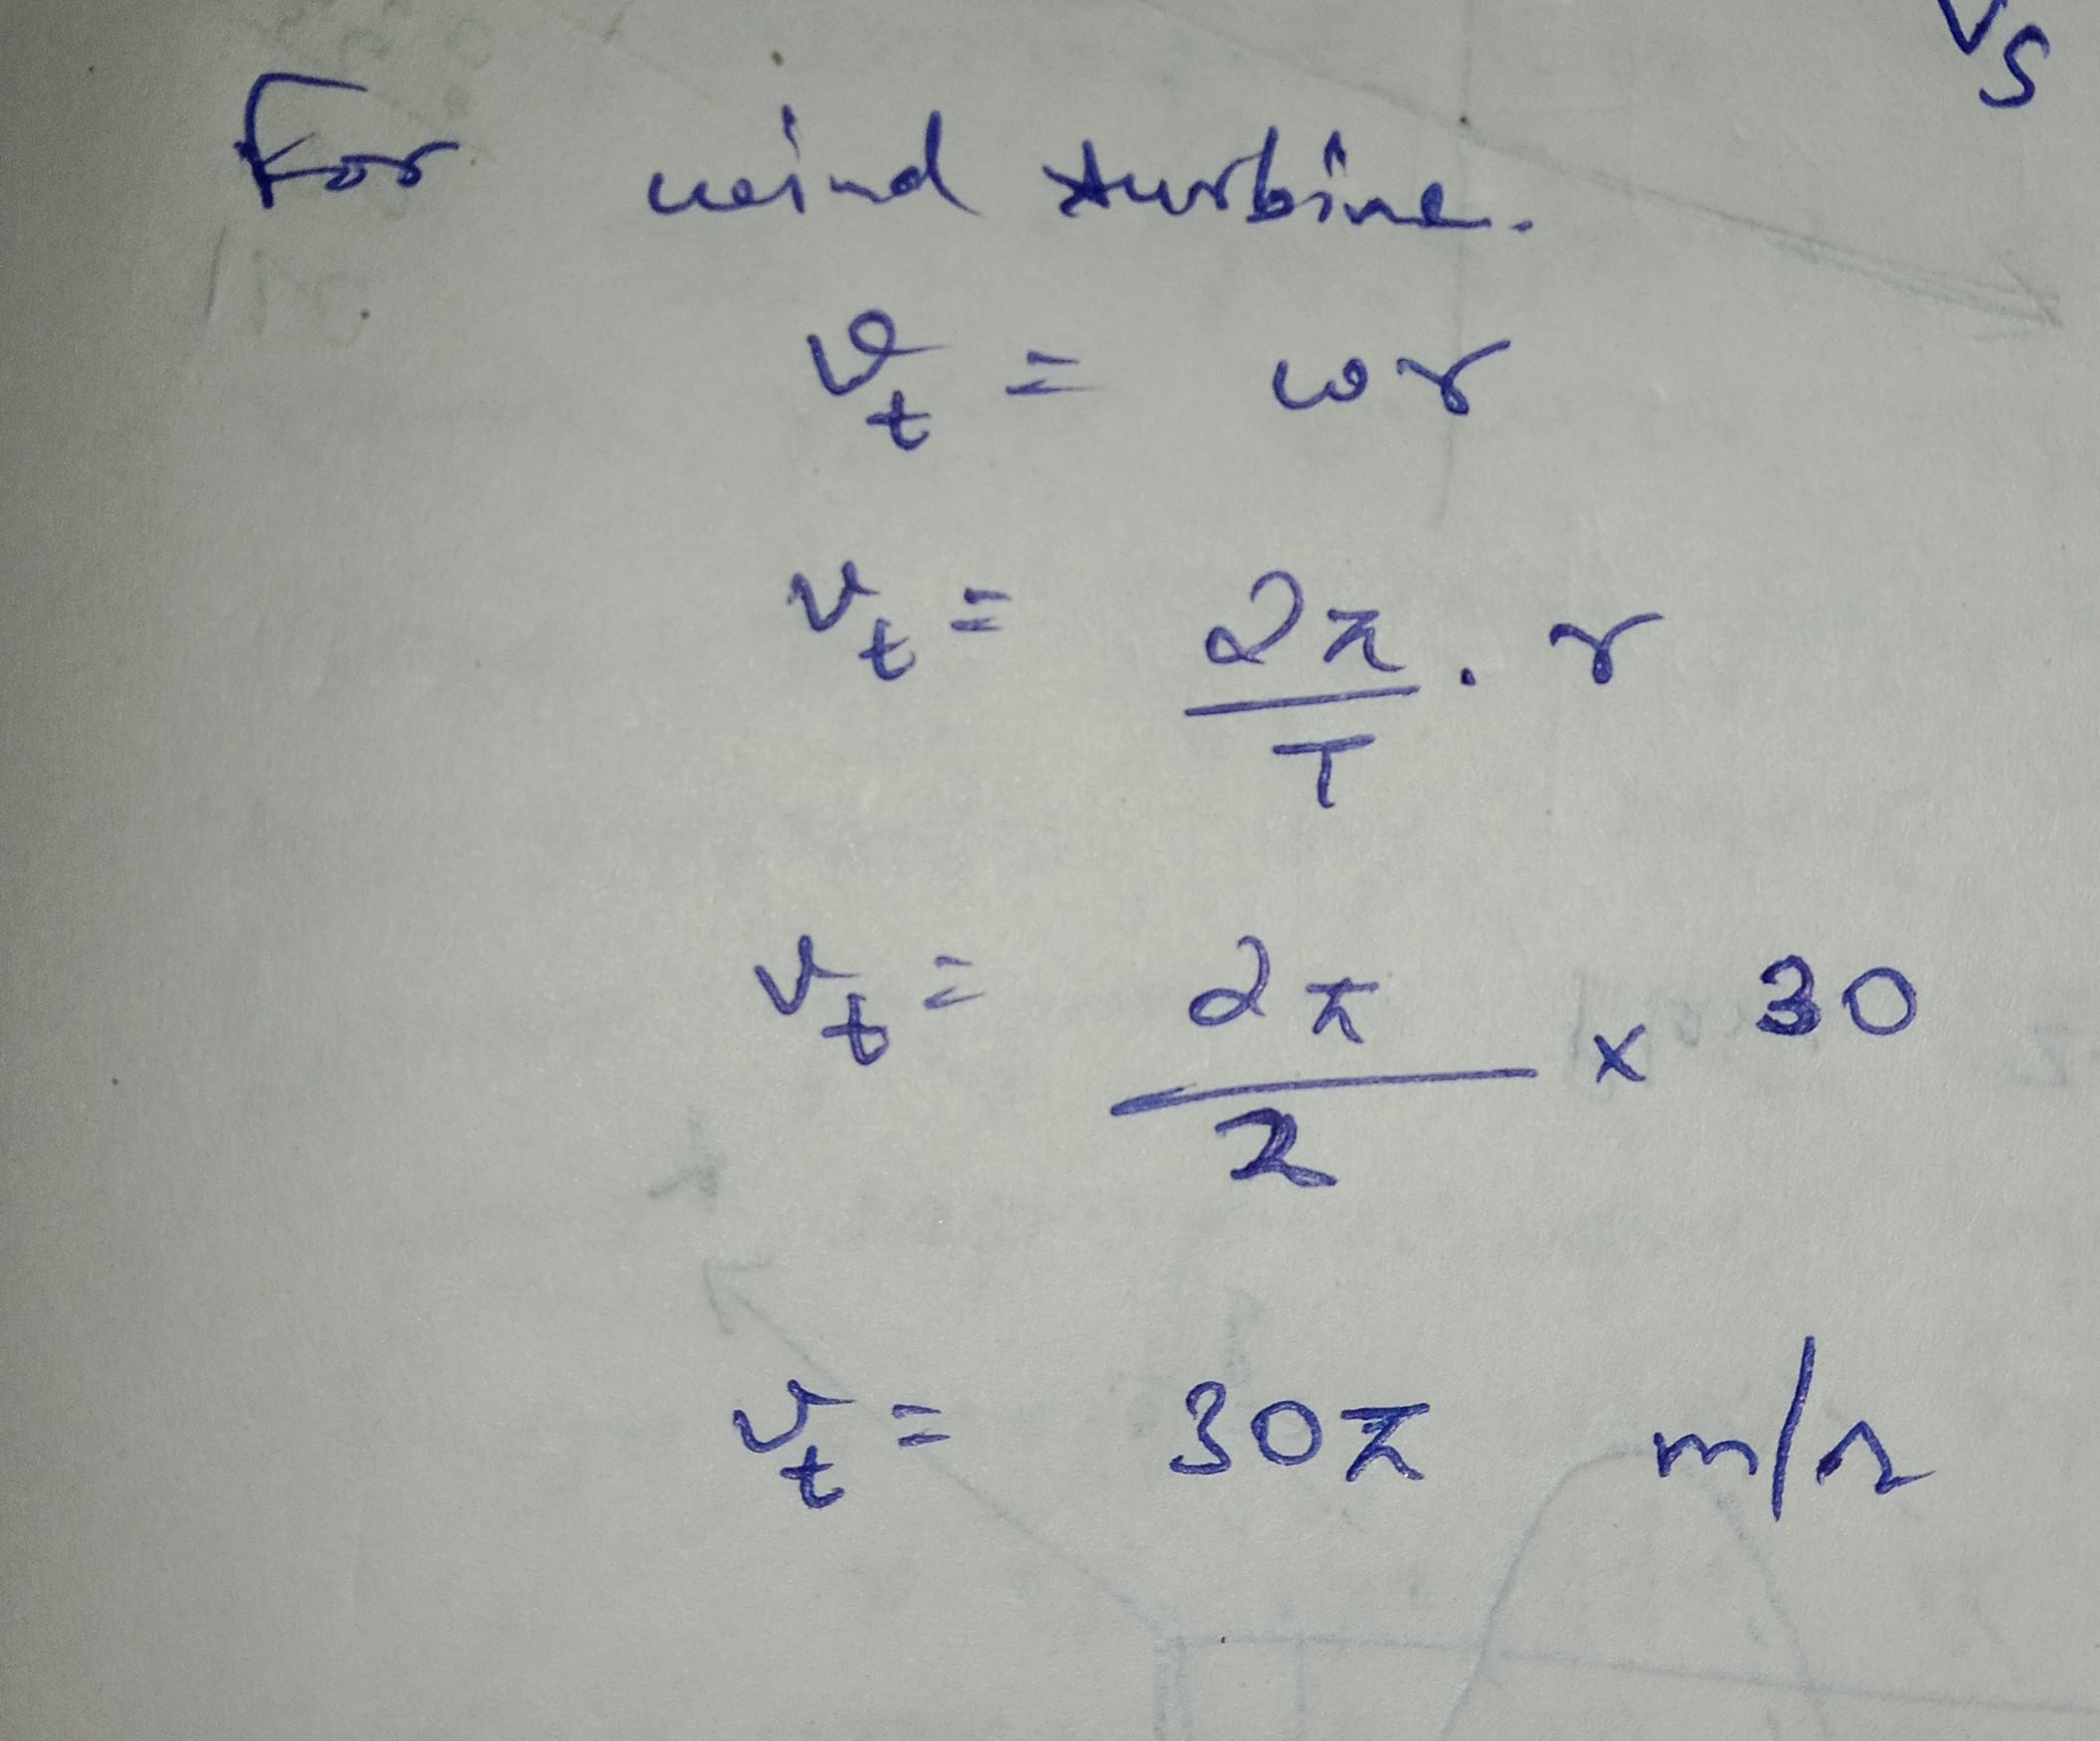 Vs
For wind turbine.
v_t = ωr
v_t = 2π/T . r
v_t = 2π/2 × 30
v_t = 30π m/s